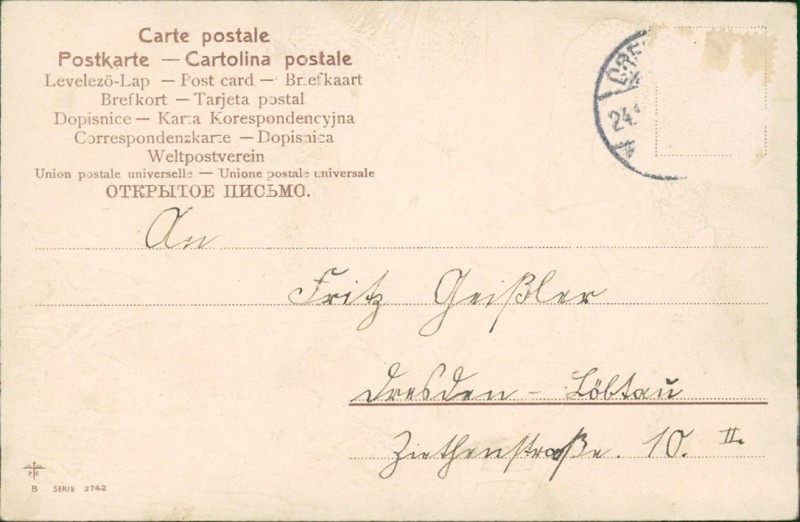 Carte postale
Postkarte — Cartolina postale
Levelezö-Lap — Post card — Briefkaart
Brefkort — Tarjeta postal
Dopisnice — Karta Korespondencyjna
Correspondenzkarte — Dopisnica
Weltpostverein
Union postale universelle — Unione postale universale
ОТКРЫТОЕ ПИСЬМО.
DRE
24.
An
Fritz Geißler
Dresden - Löbtau
Ziethenstraße. 10. II.
B SERIE 3742